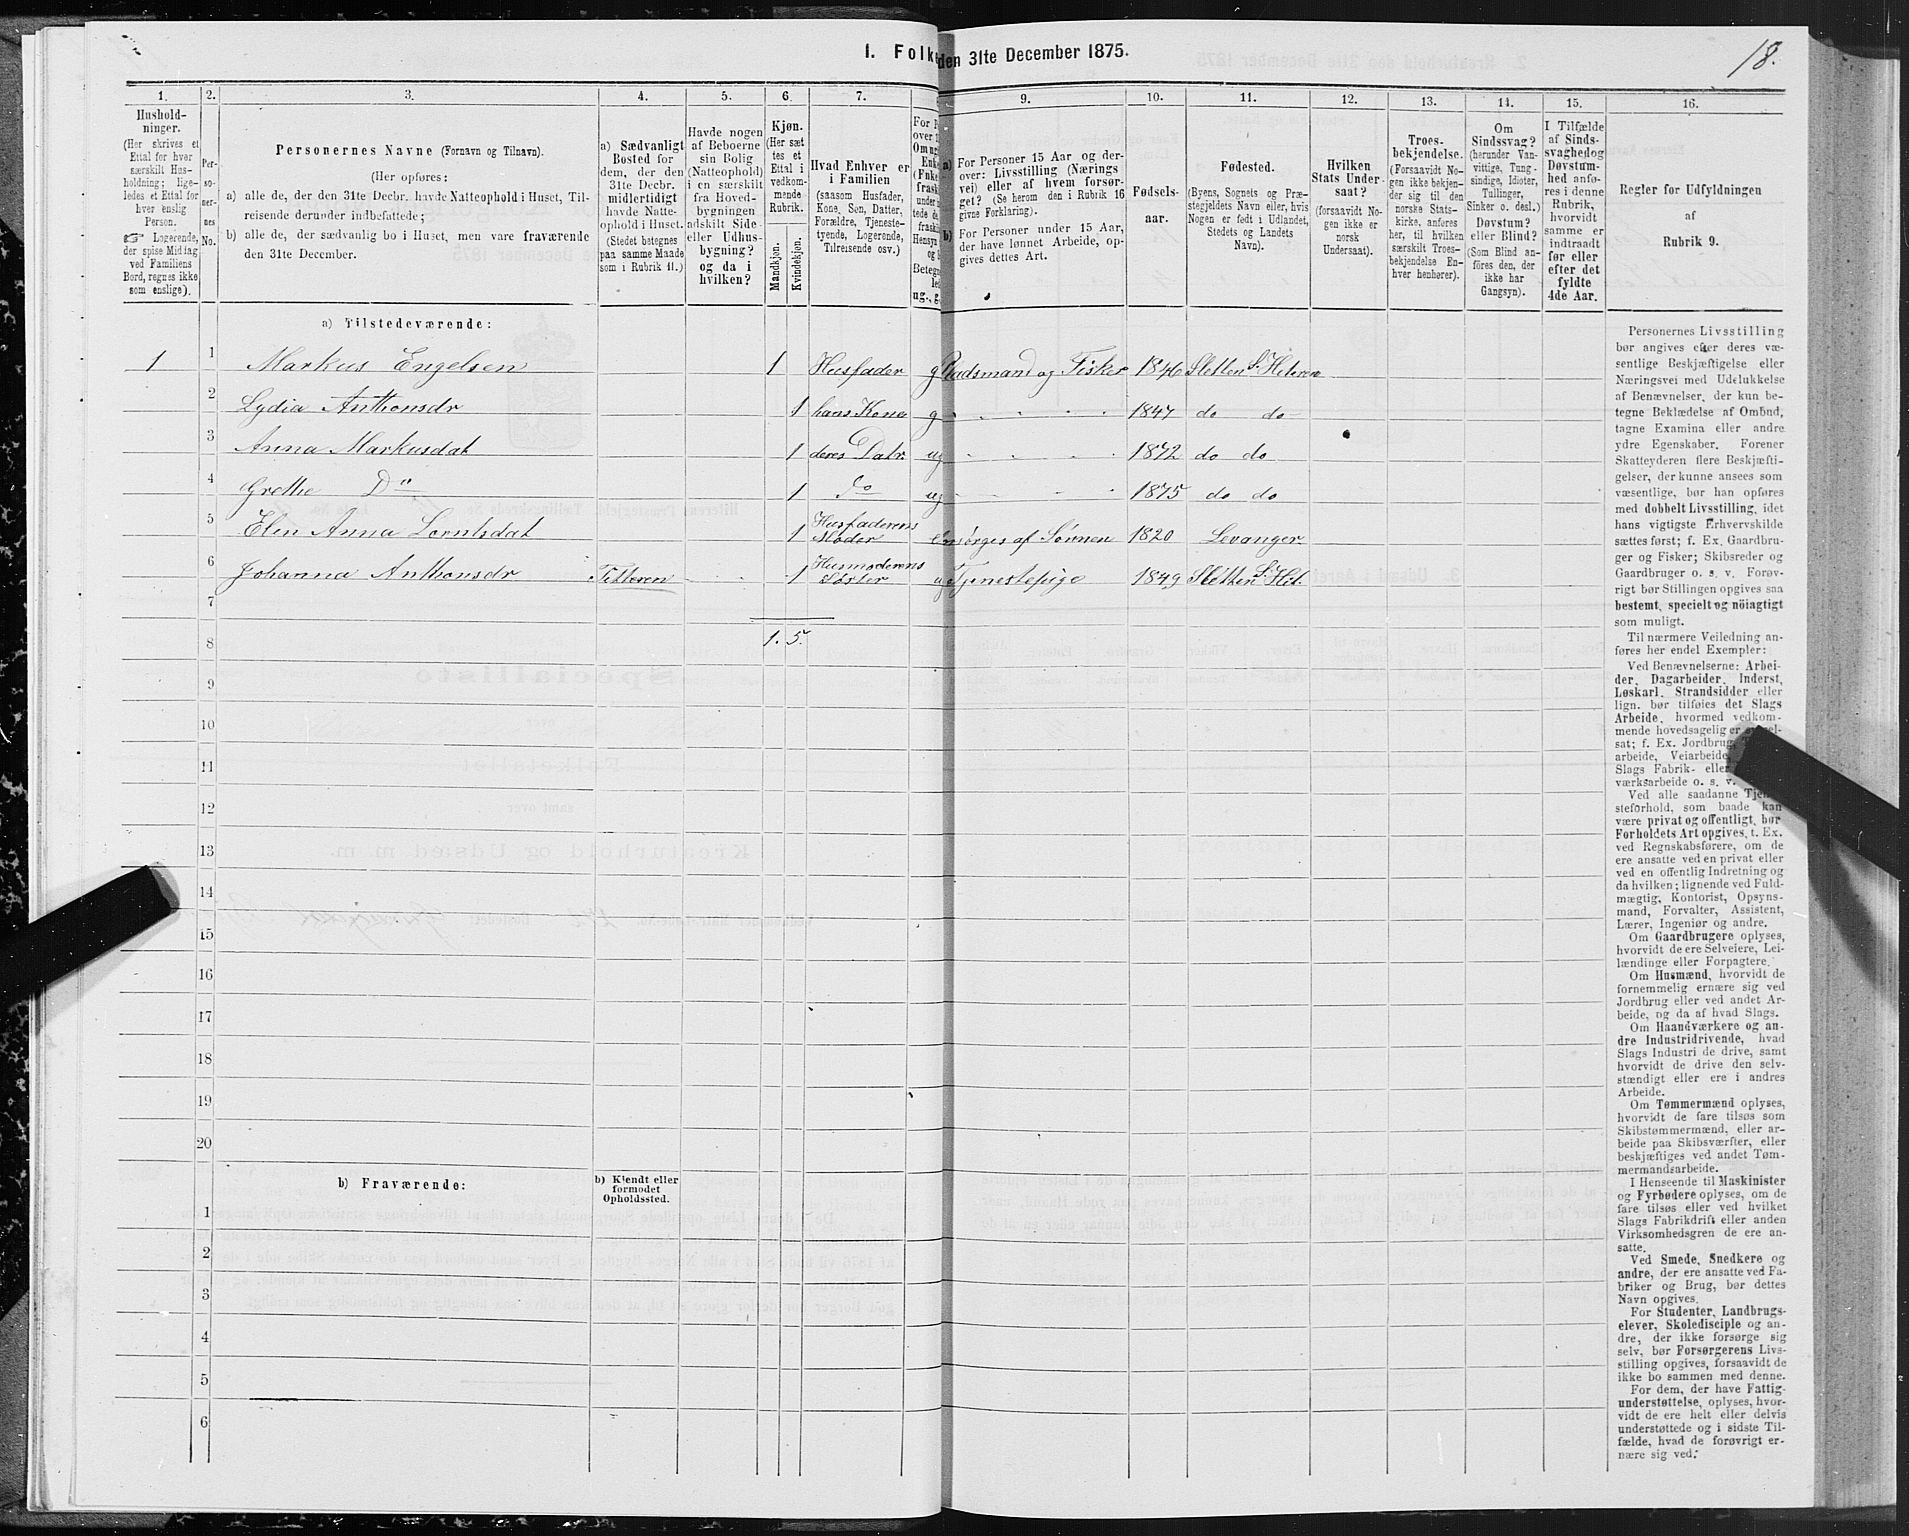 1. Folke
den 31te December 1875.
18.
1.
2.
3.
4.
5.
6.
7.
9.
10.
11.
12.
13.
14.
15.
16.
Hushold-
ninger.
(Her skrives et
Ettal for hver
særskilt Hus-
holdning; lige-
ledes et Ettal for
hver enslig
Person.
☞ Logerende,
der spise Middag
ved Familiens
Bord, regnes ikke
som enslige).
Per-
so-
ner-
nes
No.
Personernes Navne (Fornavn og Tilnavn).
(Her opføres:
a) alle de, der den 31te Decbr. havde Natteophold i Huset, Til-
reisende derunder indbefattede;
b) alle de, der sædvanlig bo i Huset, men vare fraværende
den 31te December.
a) Sædvanligt
Bosted for
dem, der den
31te Decbr.
midlertidigt
havde Natte-
ophold i Huset.
(Stedet betegnes
paa samme Maade
som i Rubrik 11.)
Havde nogen
af Beboerne
sin Bolig
(Natteophold)
i en særskilt
fra Hoved-
bygningen
adskilt Side-
eller Udhus-
bygning?
og da i
hvilken?
Kjøn.
(Her sæt
tes et
Ettal i
vedkom-
mende
Rubrik.
Mandkjøn.
Kvindekjøn.
Hvad Enhver er
i Familien
(saasom Husfader,
Kone, Søn, Datter,
Forældre, Tjeneste-
tyende, Logerende,
Tilreisende osv.)
a)
For Personer 15 Aar og der-
over: Livsstilling (Nærings
vei) eller af hvem forsør-
get? (Se herom den i Rubrik 16
givne Forklaring).
b)
For Personer under 15 Aar,
der have lønnet Arbeide, op-
gives dettes Art.
Fødsels-
aar.
Fødested.
(Byens, Sognets og Præ-
stegjeldets Navn eller, hvis
Nogen er født i Udlandet,
Stedets og Landets
Navn).
Hvilken
Stats Under-
saat?
(forsaavidt No-
gen ikke er
norsk
Undersaat).
Troes-
bekjendelse.
(Forsaavidt No-
gen ikke bekjen-
der sig til den
norske Stats-
kirke, anføres
her, til hvilken
særskilt Troes-
bekjendelse En-
hver henhører).
Om
Sindssvag?
(herunder Van-
vittige, Tung-
sindige, Idioter,
Tullinger,
Sinker o. desl.)
Døvstum?
eller Blind?
(Som Blind an-
føres den, der
ikke har
Gangsyn).
I Tilfælde
af Sinds-
svaghed og
Døvstum-
hed anfø-
res i denne
Rubrik,
hvorvidt
samme er
indtraadt
før eller
efter det
fyldte
4de Aar.
Regler for Udfyldningen
af
Rubrik 9.
a) Tilstedeværende:
1 1 Markus Engelsen 1 Husfader g Gaadsmand og Fisker 1846 Sletten S. Hiteren
2 Lydia Anthonsdr 1 hans Kone g 1847 do do
3 Anna Markusdat 1 deres Datr. ug 1872 do do
4 Grethe Do 1 do ug 1875 do do
5 Elen Anna Lorntsdat 1 Husfaderens Moder e forsørges af Sønnen 1820 Levanger
6 Johanna Anthonsdr Titteren 1 Husmoderens Søster ug Tjenestepige 1849 Sletten S. Hit.
7
8 1. 5.
9
10
11
12
13
14
15
16
17
18
19
20
b) Fraværende:
b) Kjendt eller
formodet
Opholdssted.
1
2
3
4
5
6
Personernes Livsstilling
bør angives efter deres væ-
sentlige Beskjæftigelse eller
Næringsvei med Udelukkelse
af Benævnelser, der kun be-
tegne Beklædelse af Ombud,
tagne Examina eller andre
ydre Egenskaber. Forener
Skatteyderen flere Beskjæfti-
gelser, der kunne ansees som
væsentlige, bør han opføres
med dobbelt Livsstilling, idet
hans vigtigste Erhvervskilde
sættes først; f. Ex. Gaardbru-
ger og Fisker; Skibsreder og
Gaardbruger o. s. v. Forøv-
rigt bør Stillingen opgives saa
bestemt, specielt og nöiagtigt
som muligt.
Til nærmere Veiledning an-
føres her endel Exempler:
Ved Benævnelserne: Arbei-
der, Dagarbeider, Inderst,
Løskarl, Strandsidder eller
lign. bør tilføies det Slags
Arbeide, hvormed vedkom-
mende hovedsagelig er
sat; f. Ex. Jordbrug,
arbeide, Veiarbeide,
Slags Fabrik- eller
værksarbeide o. s. v.
Ved alle saadanne Tjene-
steforhold, som baade kan
være privat og offentligt, bør
Forholdets Art opgives, t. Ex.
ved Regnskabsførere, om de
ere ansatte ved en privat eller
ved en offentlig Indretning og
da hvilken; lignende ved Fuld-
mægtig, Kontorist, Opsyns-
mand, Forvalter, Assistent,
Lærer, Ingeniør og andre.
Om Gaardbrugere oplyses,
hvorvidt de ere Selveiere, Lei-
lændinge eller Forpagtere.
Om Husmænd, hvorvidt de
fornemmelig ernære sig ved
Jordbrug eller ved andet Ar-
beide, og da af hvad Slags.
Om Haandværkere og an-
dre Industridrivende, hvad
Slags Industri de drive, samt
hvorvidt de drive den selv-
stændigt eller ere i andres
Arbeide.
Om Tømmermænd oplyses,
hvorvidt de fare tilsøs som
Skibstømmermænd, eller ar-
beide paa Skibsværfter, eller
beskjæftiges ved andet Tøm-
mermandsarbeide.
I Henseende til Maskinister
og Fyrbødere oplyses, om de
fare tilsøs eller ved hvilket
Slags Fabrikdrift eller anden
Virksomhedsgren de ere an-
satte.
Ved Smede, Snedkere og
andre, der ere ansatte ved Fa-
briker og Brug, bør dettes
Navn opgives.
For Studenter, Landbrugs-
elever, Skoledisciple og an-
dre, der ikke forsørge sig
selv, bør Forsørgerens Livs-
stilling opgives, forsaavidt de
ikke bo sammen med denne.
For dem, der have Fattig-
understøttelse, oplyses, hvor-
vidt de ere helt eller delvis
understøttede og i sidste Til-
fælde, hvad de forøvrigt er-
nære sig ved.